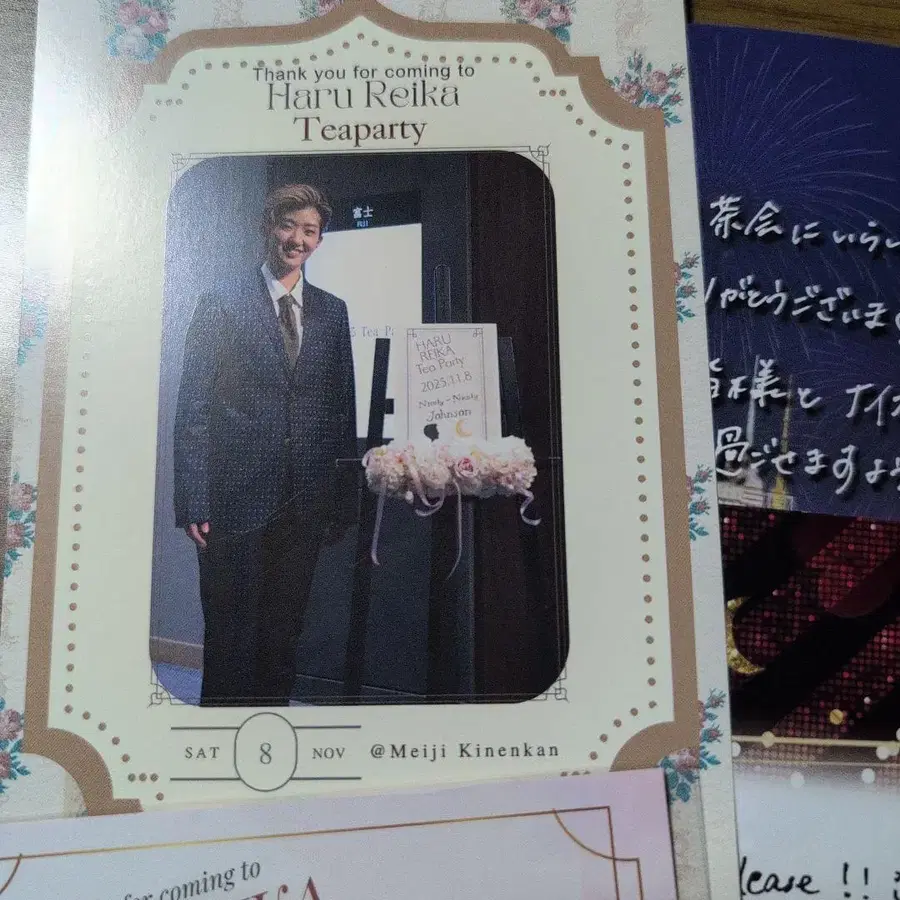 Thank you for coming to
Haru Reika
Teaparty
富士
FUJI
Tea Pa
HARU
REIKA
Tea Party
2025.11.8
Johnson
SAT 8 NOV @Meiji Kinenkan
茶会にいらい
がとうございます
様と ナイ
過ごせますよう
for coming to
lease !!